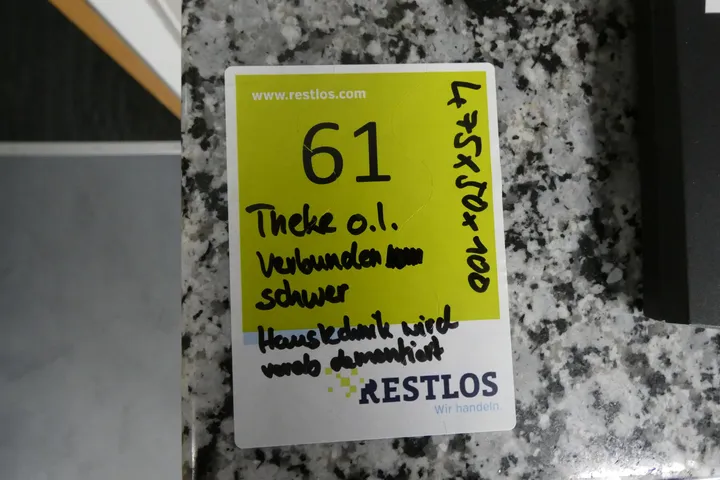 www.restlos.com
61
475x50x100
Theke o.l.
Verbunden
schwer
Haustechnik wird
vorab demontiert
RESTLOS
Wir handeln